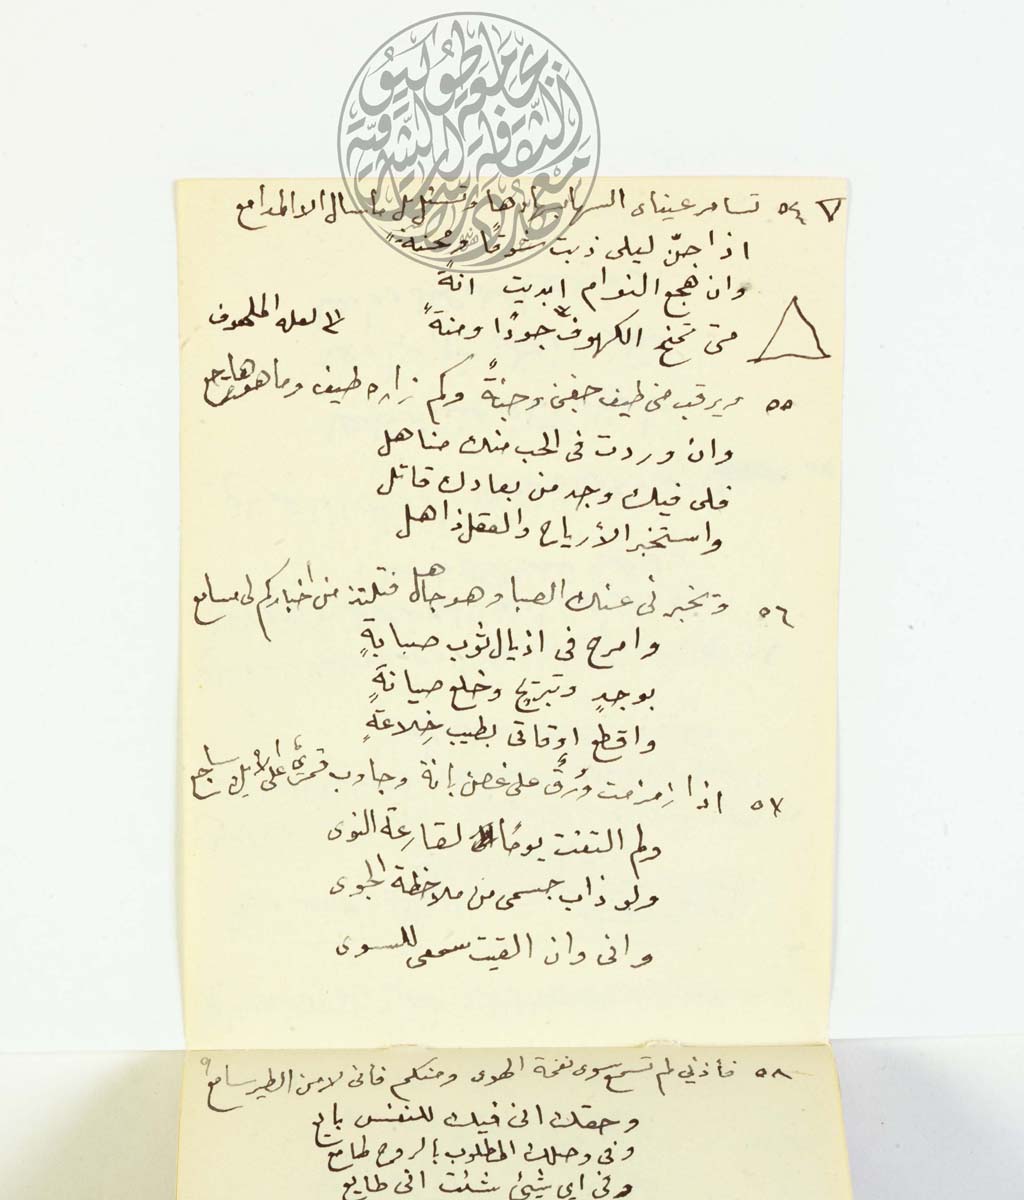 ٥٤ تسامر عيناى السها بسهادها وتسئل بل ما سال الا المدامع
اذا جنّ ليلى ذبت شوقًا ومحنةً
وان هجع النوام ابديت انةً
متى تمنح الكهوف جودًا ومنةً ٣ لعله الملهوف
٥٥ ويرقب منى طيف جفنى وجنةً وكم زاره طيف وما هو هاجع
وان وردت فى الحب منك مناهل
فلى فيك وجد من بعادك قاتل
واستخبر الأرياح والعقل ذاهل
٥٦ وتخبرنى عنك الصبا وهو جاهل فتلتذ من اخباركم لى مسامع
وامرح فى اذيال ثوب صبابةٍ
بوجدٍ وتبريح وخلع صيانةٍ
واقطع اوقاتى بطيب خِلاعةٍ
٥٧ اذا زمزمت وُرقٌ على غصن بانة وجاوب قمرىٌّ على الايك ساجع
ولم التفت يومًا لقارعة النوى
ولو ذاب جسمى من ملاحظة الجوى
وانى وان القيت سمعى للسوى
٥٨ فأذني لم تسمع سوى نغمة الهوى ومنكم فانى لا من الطير سامع
وحقك انى فيك للنفس بايع
وفى وصلك المطلوب بالروح طامع
وفى اي شيئ شئت انى طايع